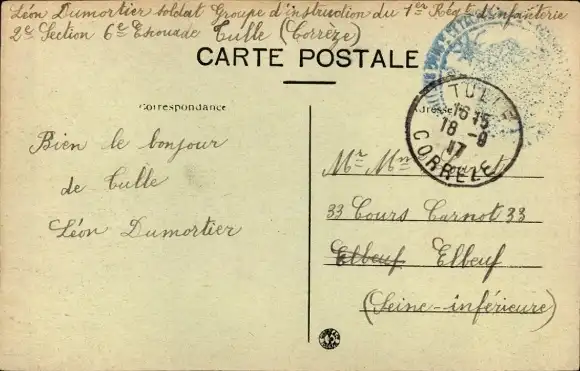 Léon Dumortier soldat Groupe d'instruction du 1er Régt d'infanterie
2e Section 6e Escouade Tulle (Corrèze)
CARTE POSTALE
Correspondance
Adresse
TULLE
16 15
18 -9
17
CORREZE
Bien le bonjour
de Tulle
Léon Dumortier
Mr
33 Cours Carnot 33
Elbeuf Elbeuf
(Seine-inférieure)